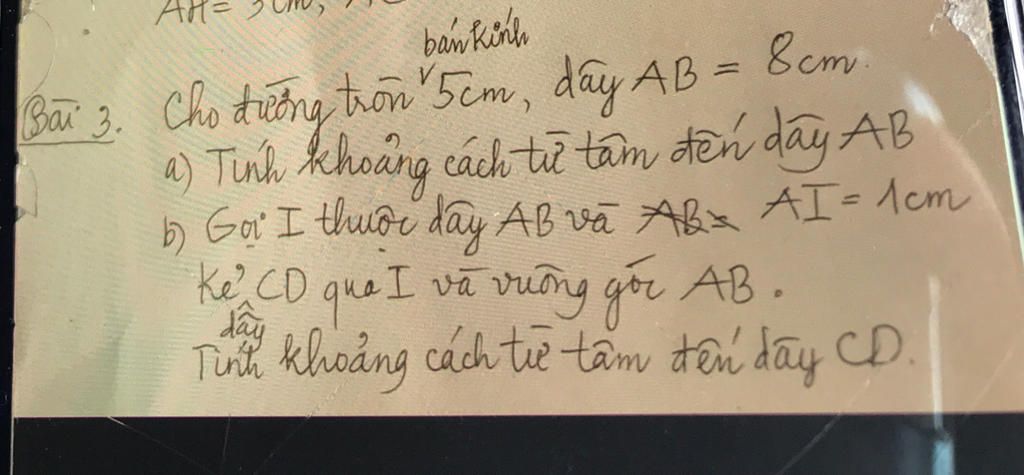 AH = 3cm,
bán kính
Bài 3. Cho đường tròn v 5cm, dây AB = 8cm.
a) Tính khoảng cách từ tâm đến dây AB
b) Gọi I thuộc dây AB và AB= AI = 1cm
Kẻ CD qua I và vuông góc AB.
dây
Tính khoảng cách từ tâm đến dây CD.